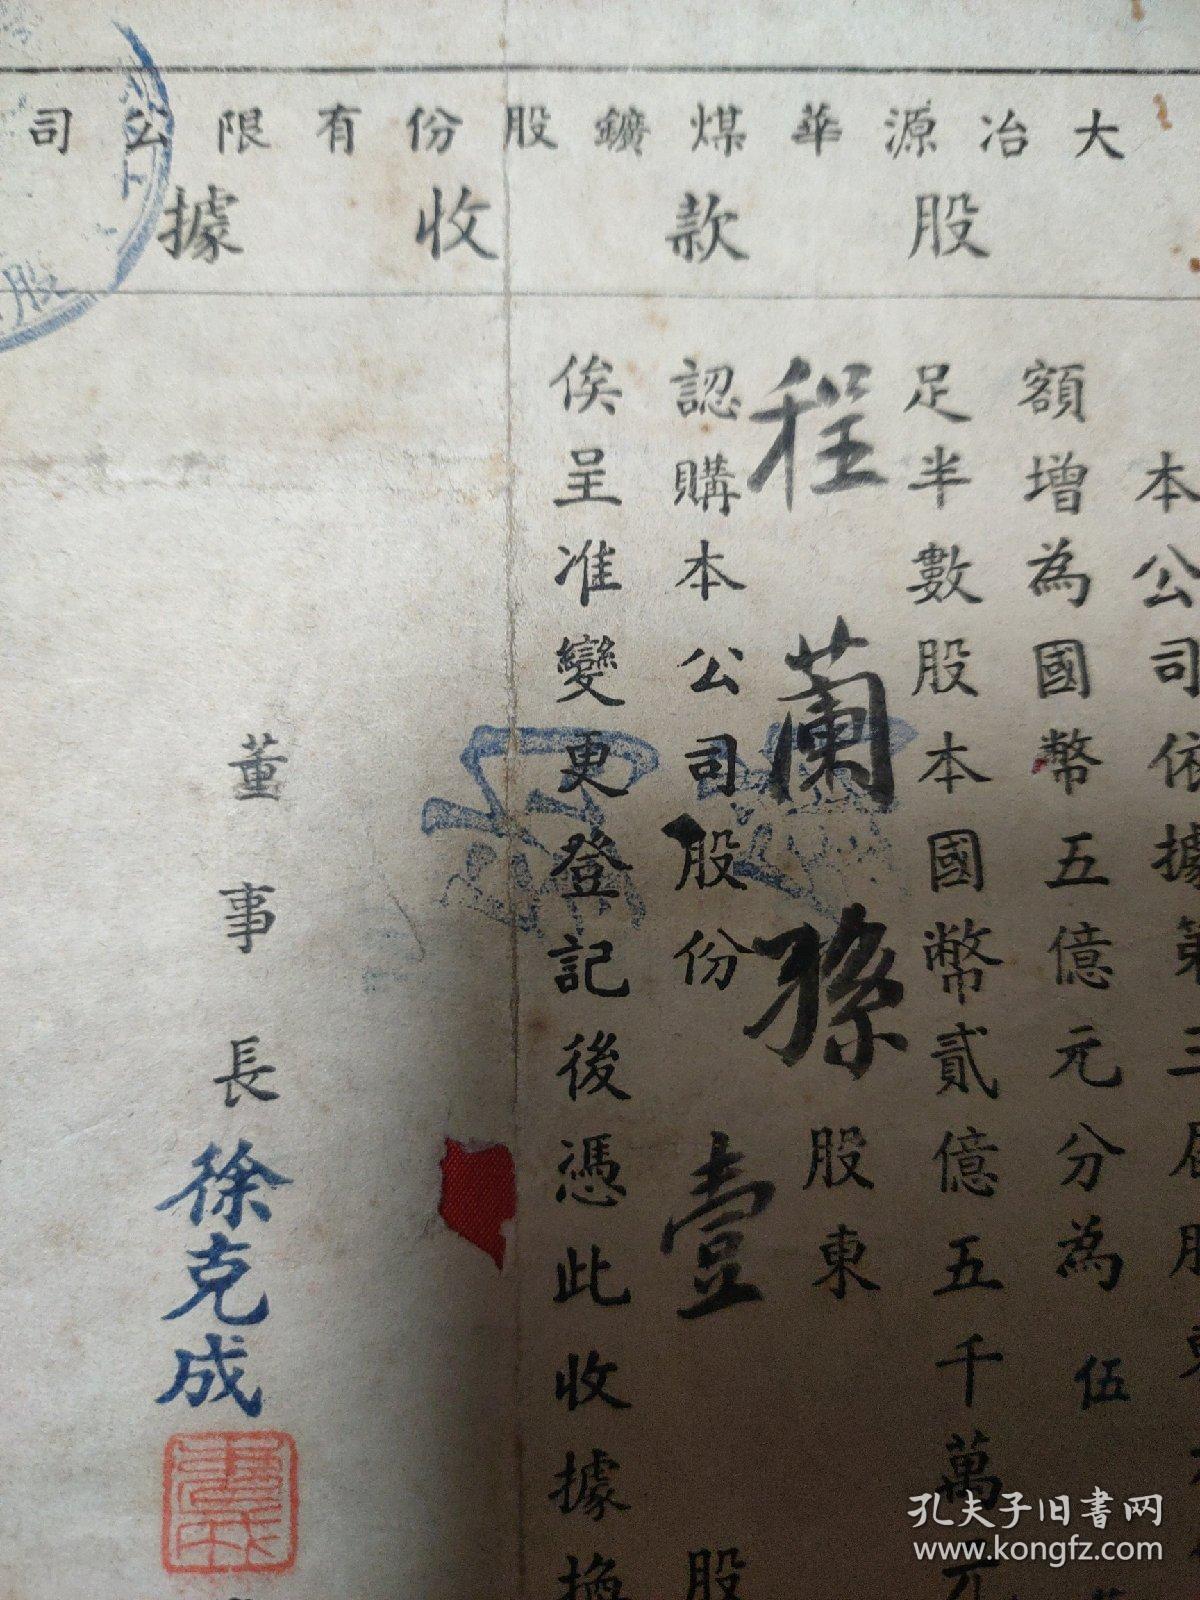 大冶源華煤鑛股份有限公司
股款收據
本公司依據第三屆股東
額增為國幣五億元分為伍
足半數股本國幣貳億五千萬元
程蘭孫股東
認購本公司股份壹股
俟呈准變更登記後憑此收據換
董事長徐克成
股
孔夫子旧書网
www.kongfz.com